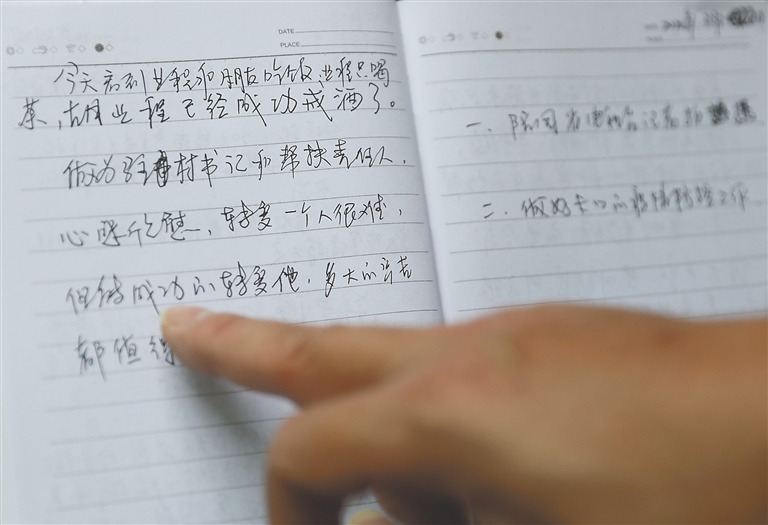 DATE
PLACE
今天看到 程和朋友吃饭, 程只喝
茶, 程已经成功戒酒了。
做为驻村书记和帮扶责任人,
心里欣慰, 转变一个人很难,
但能成功的转变他, 多大的辛苦
都值得
一、
二、做好卡口的疫情防控工作